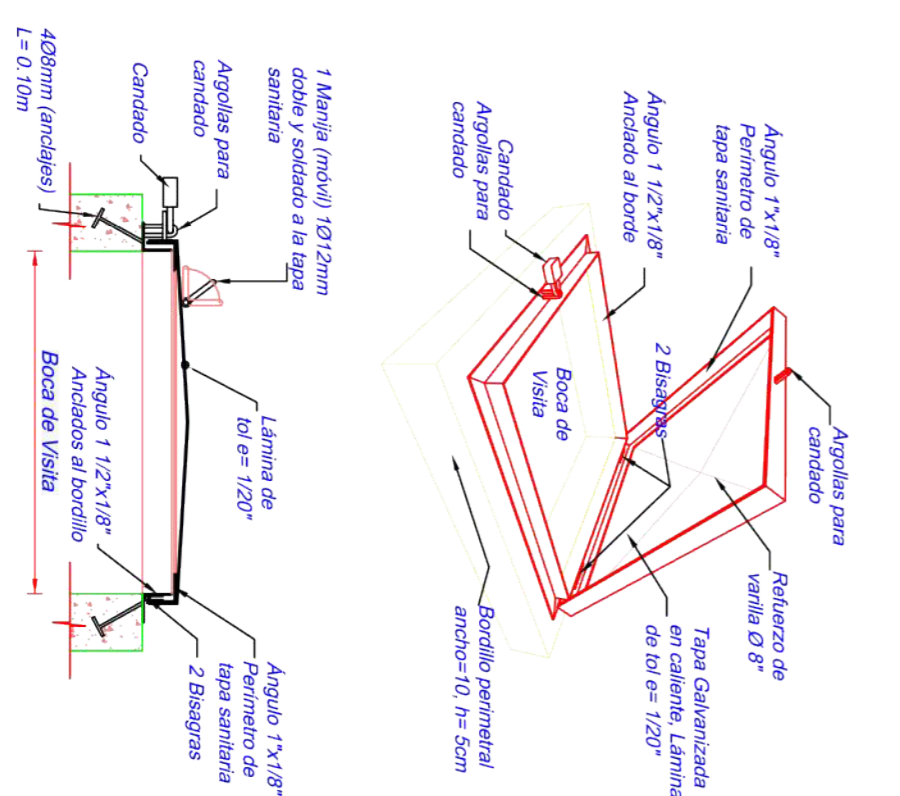 Ángulo 1"x1/8"
Perímetro de
tapa sanitaria
Ángulo 1 1/2"x1/8"
Anclado al borde
Candado
Argollas para
candado
2 Bisagras
Boca de
Visita
Argollas para
candado
Refuerzo de
varilla Ø 8"
Tapa Galvanizada
en caliente, Lámina
de tol e= 1/20"
Bordillo perimetral
ancho=10, h= 5cm
1 Manija (móvil) 1Ø12mm
doble y soldado a la tapa
sanitaria
Argollas para
candado
Candado
4Ø8mm (anclajes)
L= 0.10m
Lámina de
tol e= 1/20"
Ángulo 1 1/2"x1/8"
Anclados al bordillo
Boca de Visita
Ángulo 1"x1/8"
Perímetro de
tapa sanitaria
2 Bisagras